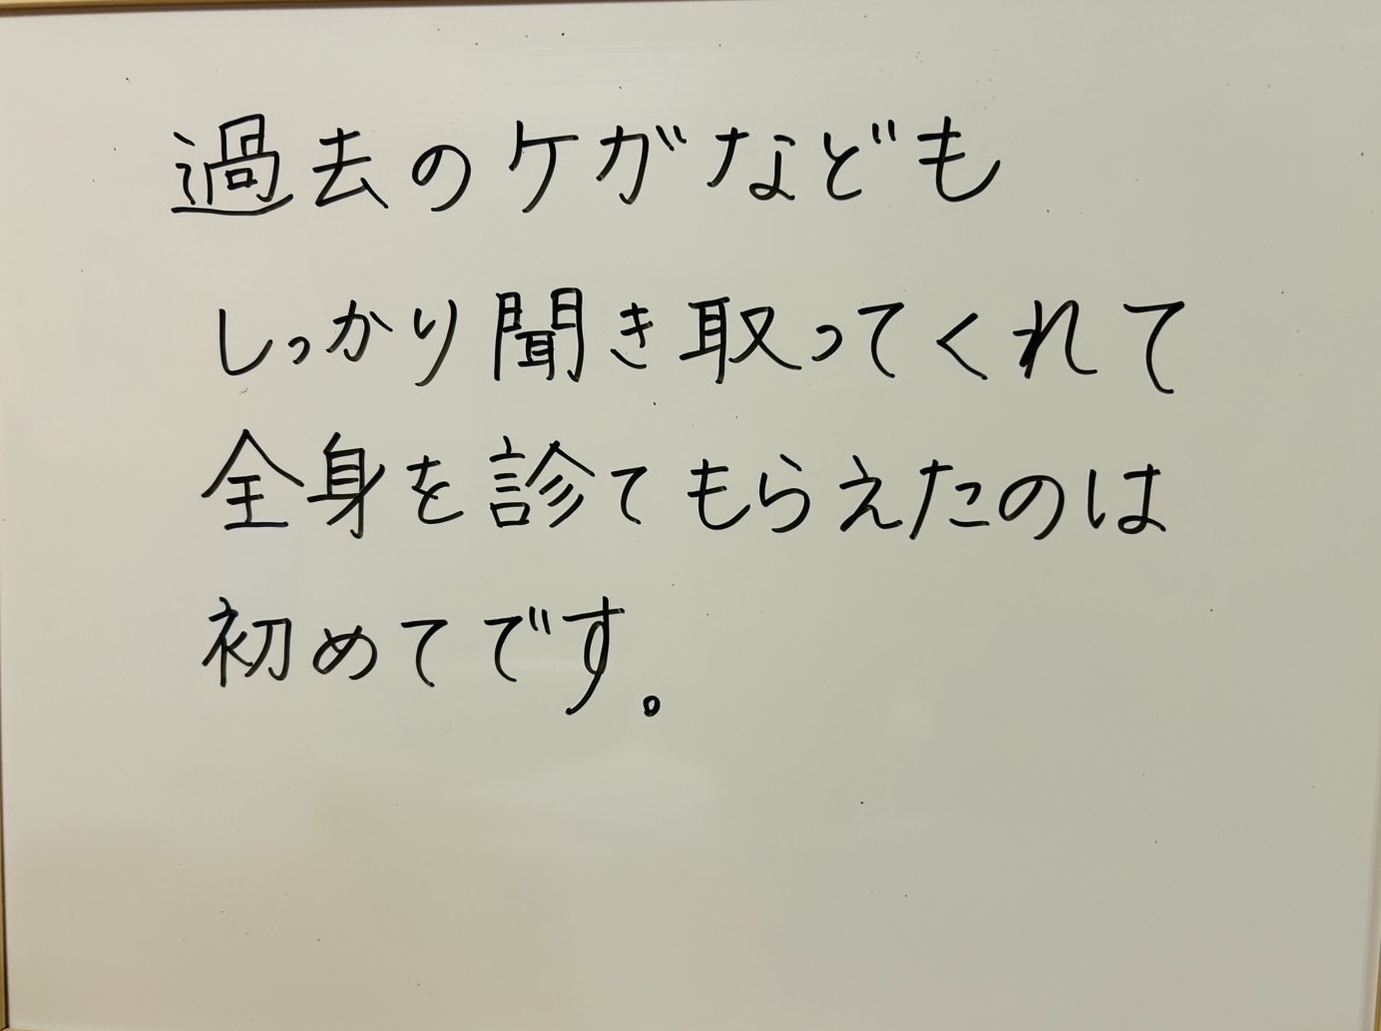 過去のケガなども
しっかり聞き取ってくれて
全身を診てもらえたのは
初めてです。